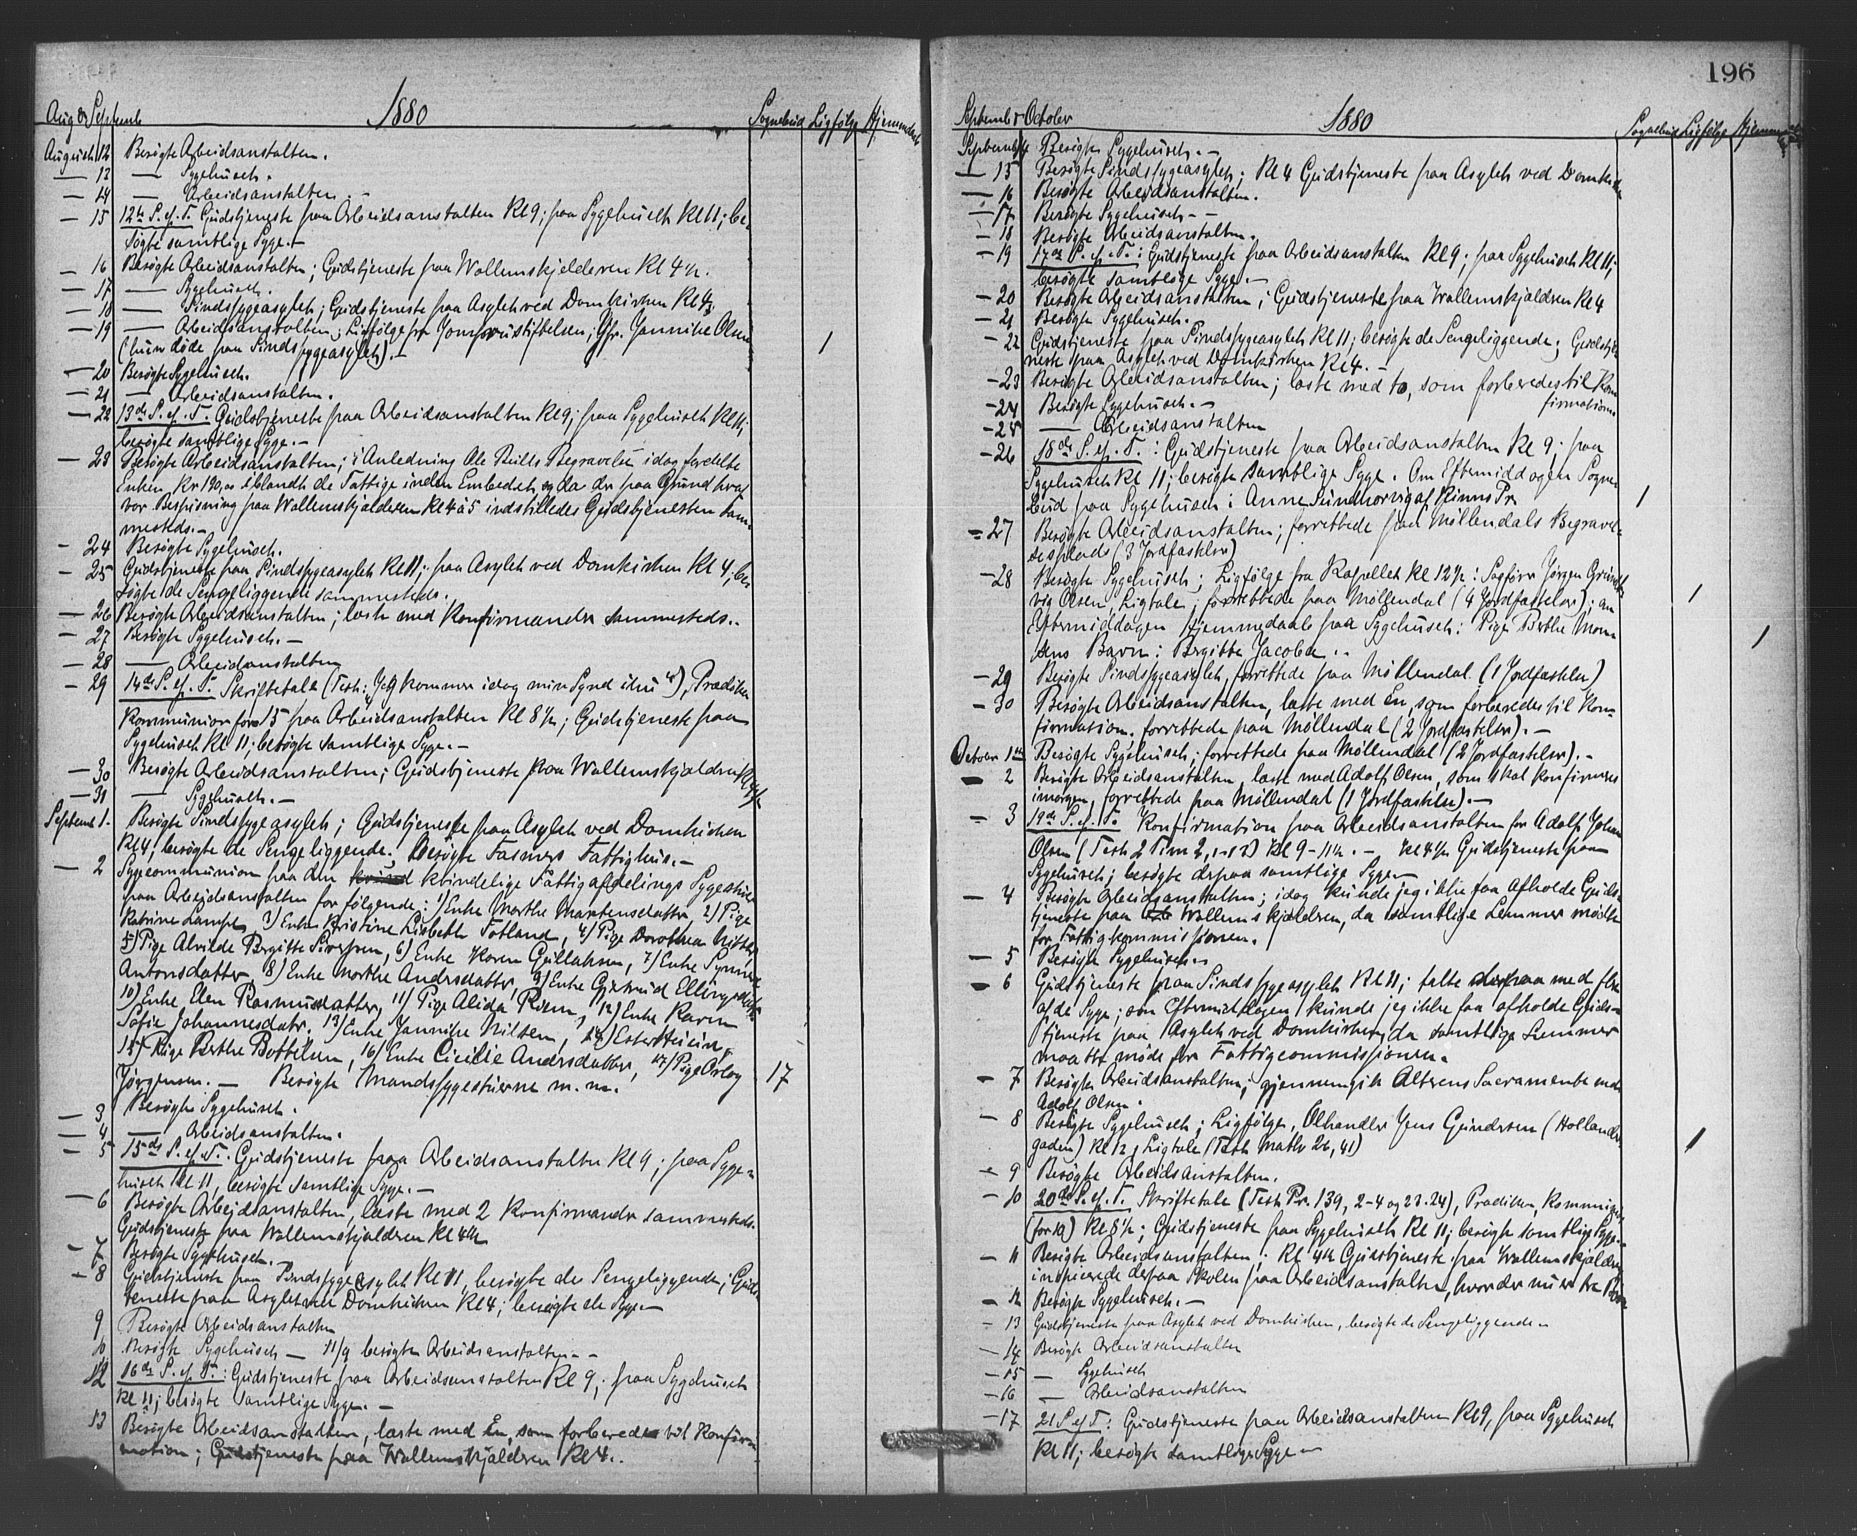 Aug & Septemb 1880 Sognebud Ligfølge Hjemmedaab
August 12 Besøgte Arbeidsanstalten.
— 13 — Sygehuset.
— 14 — Arbeidsanstalten. -
— 15 12te S. ef. T. Gudstjeneste paa Arbeidsanstalten Kl 9; paa Sygehuset Kl 11; be-
søgte samtlige Syge. —
— 16 Besøgte Arbeidsanstalten; Gudstjeneste paa Wallemskjelderen Kl 4½.
— 17 — Sygehuset.
— 18 — Sindssygeasylet; Gudstjeneste paa Asylet ved Domkirken Kl 4;
— 19 — Arbeidsanstalten; Ligfølge fra Jomfrustiftelsen, Jfr. Jannike Olsen
(hun døde paa Sindssygeasylet). — 1
— 20 Besøgte Sygehuset.
— 21 — Arbeidsanstalten.
— 22 13de S. ef. T. Gudstjeneste paa Arbeidsanstalten Kl 9; paa Sygehuset Kl 11;
besøgte samtlige Syge. —
— 23 Besøgte Arbeidsanstalten; i Anledning Ole Bulls Begravelse idag fordelte
Enken Kr 190,00 iblandt de Fattige inden Embedet og da der paa Grund heraf
var Bespisning paa Wallemskjelderen Kl 4 à 5 indstilledes Gudstjenesten sam-
mesteds. —
— 24 Besøgte Sygehuset.
— 25 Gudstjeneste paa Sindssygeasylet Kl 11; paa Asylet ved Domkirken Kl 4; be-
søgte de Sengeliggende sammesteds.
— 26 Besøgte Arbeidsanstalten; læste med Konfirmander sammesteds..
— 27 Besøgte Sygehuset. —
— 28 — Arbeidsanstalten
— 29 14de S. ef. T. Skriftetale (Text: Jeg kommer idag min Synd ihu), Prædiken
Kommunion for 15 paa Arbeidsanstalten Kl 8½; Gudstjeneste paa
Sygehuset Kl 11; besøgte samtlige Syge. —
— 30 Besøgte Arbeidsanstalten; Gudstjeneste paa Wallemskjeldren Kl 4½.
— 31 — Sygehuset. —
Septemb 1. Besøgte Sindssygeasylet; Gudstjeneste paa Asylet ved Domkirken
Kl 4; besøgte de Sengeliggende. Besøgte Fasmers Fattighus. —
— 2 Sygecommunion paa den kvindelige Fattigafdelings Sygestuer
paa Arbeidsanstalten for følgende: 1) Enke Marthe Martensdatter, 2) Pige
Katrine Lampe, 3) Enke Kristine Lisbeth Fotland, 4) Pige Dorothea Nitter
5) Pige Alvilde Birgitte Siversen, 6) Enke Karen Gullaksen, 7) Enke Synneve
Antonsdatter, 8) Enke Marthe Andersdatter, 9) Enke Gjertrud Ellingsdatter
10) Enke Elen Rasmusdatter, 11) Pige Alida Riim, 12) Enke Karen
Sofie Johannesdatr, 13) Enke Jannike Nilsen, 14) Ester Heiein,
15) Pige Berthe Bottelsen, 16) Enke Cicilie Andersdatter, 17) Pige Orley
Jørgensen. — Besøgte Mandssygestuerne m.m. 17
— 3 Besøgte Sygehuset.
— 4 — Arbeidsanstalten.
— 5 15de S. ef. T. Gudstjeneste paa Arbeidsanstalten Kl 9; paa Syge-
huset Kl 11, besøgte samtlige Syge. —
— 6 Besøgte Arbeidsanstalten, læste med 2 Konfirmander sammesteds.
Gudstjeneste paa Wallemskjeldren Kl 4½
— 7 Besøgte Sygehuset.
— 8 Gudstjeneste paa Sindssygeasylet Kl 11, besøgte de Sengeliggende; Guds-
tjeneste paa Asylet ved Domkirken Kl 4; besøgte de Syge. —
9 Besøgte Arbeidsanstalten
10 Besøgte Sygehuset — 11/9 besøgte Arbeidsanstalten - -
12 16de S. ef. T.: Gudstjeneste paa Arbeidsanstalten Kl 9; paa Sygehuset
Kl 11; besøgte samtlige Syge. —
13 Besøgte Arbeidsanstalten, læste med En, som forberedes til Konfir-
mation; Gudstjeneste paa Wallemskjældren Kl 4..
196
Septemb & October 1880 Sognebud Ligfølge Hjemmedaab
Septemb 14 Besøgte Sygehuset. —
— 15 Besøgte Sindssygeasylet; Kl 4 Gudstjeneste paa Asylet ved Domkirken
— 16 Besøgte Arbeidsanstalten.
— 17 Besøgte Sygehuset - -
— 18 Besøgte Arbeidsanstalten.
— 19 17de S. ef. T.: Gudstjeneste paa Arbeidsanstalten Kl 9; paa Sygehuset Kl 11;
besøgte samtlige Syge. —
— 20 Besøgte Arbeidsanstalten; Gudstjeneste paa Wallemskjældren Kl 4
— 21 Besøgte Sygehuset.
— 22 Gudstjeneste paa Sindssygeasylet Kl 11; besøgte de Sengeliggende; Gudstje-
neste paa Asylet ved Domkirken Kl 4. —
— 23 Besøgte Arbeidsanstalten; læste med to, som forberedes til Kon-
firmationen
— 24 Besøgte Sygehuset. —
— 25 — Arbeidsanstalten
— 26 18de S. ef. T.: Gudstjeneste paa Arbeidsanstalten Kl 9; paa
Sygehuset Kl 11; besøgte samtlige Syge. Om Eftermiddagen Sogne-
bud paa Sygehuset: Anne Sunmorvig af Kinns Pr 1
— 27 Besøgte Arbeidsanstalten; forrettede paa Møllendals Begravel-
sesplads (3 Jordfæstelser)
— 28 Besøgte Sygehuset; Ligfølge fra Kapellet Kl 12½: Sagfører Jørgen Grundt-
vig Olsen, Ligtale; forrettede paa Møllendal (4 Jordfæstelser); om 1
Eftermiddagen Hjemmedaab paa Sygehuset: Pige Berthe Mon-
sens Barn: Birgitte Jacobea .. 1
— 29 Besøgte Sindssygeasylet, forrettede paa Møllendal (1 Jordfæstelse)
— 30 Besøgte Arbeidsanstalten, læste med En, som forberedes til Kon-
firmation. forrettede paa Møllendal (2 Jordfæstelser). —
October 1ste Besøgte Sygehuset; forrettede paa Møllendal (2 Jordfæstelser). -
— 2 Besøgte Arbeidsanstalten, læste med Adolf Olsen, som skal konfirmeres
imorgen, forrettede paa Møllendal (1 Jordfæstelse). —
— 3 19de S. ef. T. Konfirmation paa Arbeidsanstalten for Adolf Johan
Olsen (Text 2 Tim 2, 1-13) Kl 9-11½. — Kl 4½ Gudstjeneste paa
Sygehuset; besøgte derpaa samtlige Syge —
— 4 Besøgte Arbeidsanstalten; idag kunde jeg ikke faa afholde Guds-
tjeneste paa Wallemskjældren, da samtlige Lemmer mødte
for Fattigkommissionen.
— 5 Besøgte Sygehuset..
— 6 Gudstjeneste paa Sindssygeasylet Kl 11; talte derpaa med flere
af de Syge; om Eftermiddagen kunde jeg ikke faa afholde Guds-
tjeneste paa Asylet ved Domkirken, da samtlige Lemmer
maatte møde for Fattigcommissionen.
— 7 Besøgte Arbeidsanstalten, gjennemgik Alterens Sacramente med
Adolf Olsen.
— 8 Besøgte Sygehuset; Ligfølge, Ølhandler Jens Gundersen (Hollander-
gaden) Kl 12, Ligtale (Text Math 26, 41) 1
— 9 Besøgte Arbeidsanstalten.
— 10 20de S. ef. T. Skriftetale (Text Ps. 139, 2-4 og 23.24), Prædiken, Kommunion
(for 10) Kl 8½; Gudstjeneste paa Sygehuset Kl 11; besøgte samtlige Syge. -
— 11 Besøgte Arbeidsanstalten; Kl 4½ Gudstjeneste paa Wallemskjældren
inspicerede derpaa Skolen paa Arbeidsanstalten, hvor der nu er tre Børn
— 12 Besøgte Sygehuset. —
— 13 Gudstjeneste paa Asylet ved Domkirken, besøgte de Sengeliggende -
— 14 Besøgte Arbeidsanstalten
— 15 — Sygehuset
— 16 — Arbeidsanstalten
— 17 21 S ef T: Gudstjeneste paa Arbeidsanstalten Kl 9, paa Sygehuset
Kl 11; besøgte samtlige Syge —